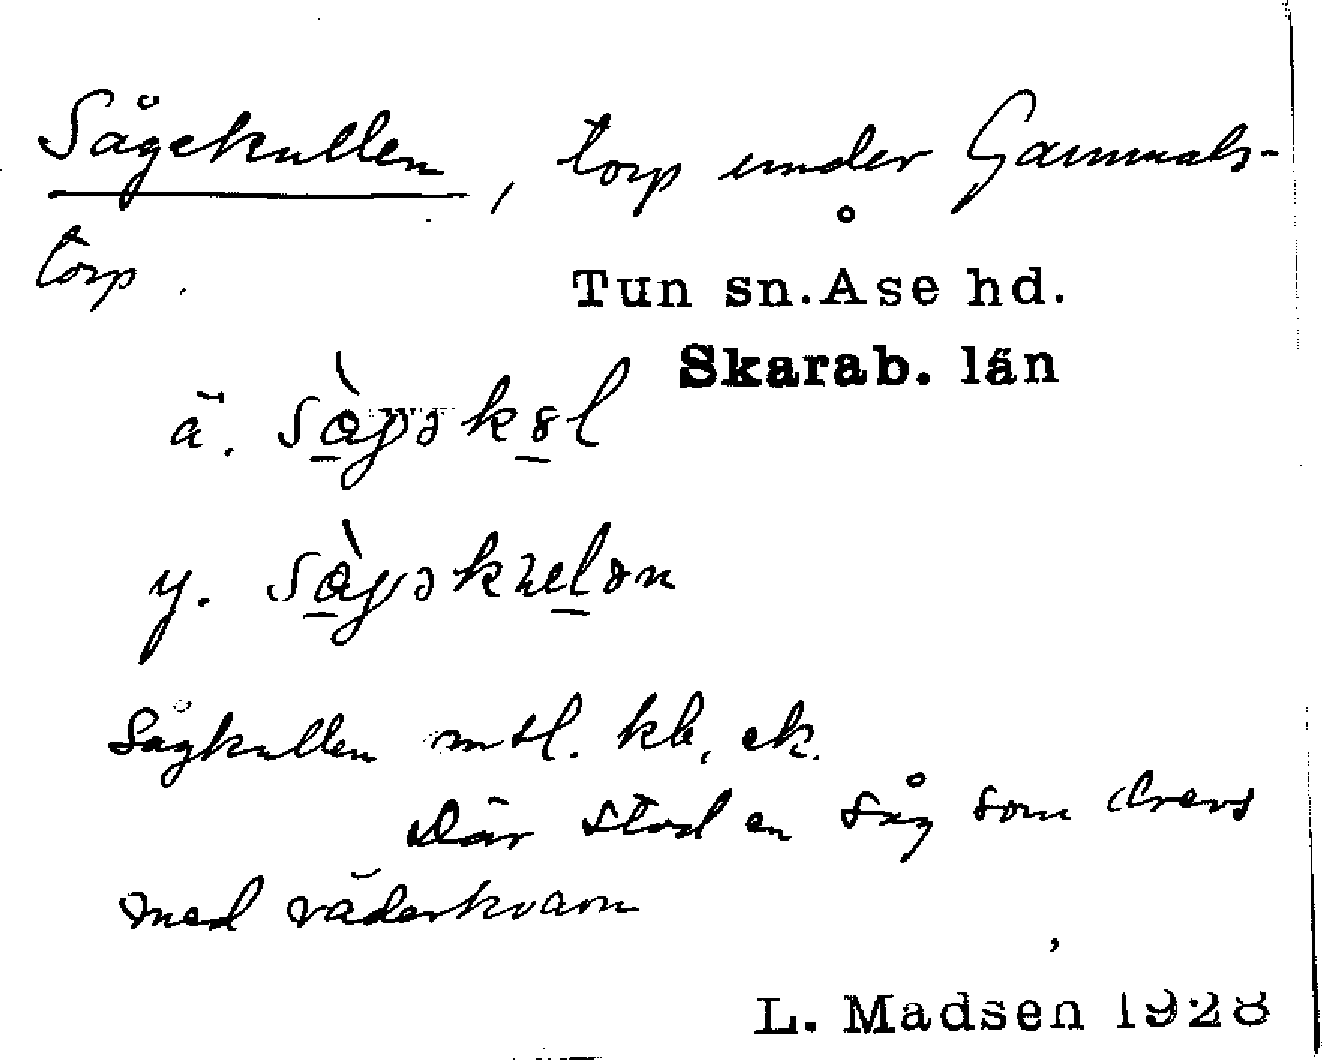 Sågekullen, torp under Gammals-
torp.
Tun sn. Åse hd.
Skarab. län
ä.
y.
Sågkullen mtl. kb, ek.
Där stod en såg som drevs
med väderkvarn
L. Madsen 1928